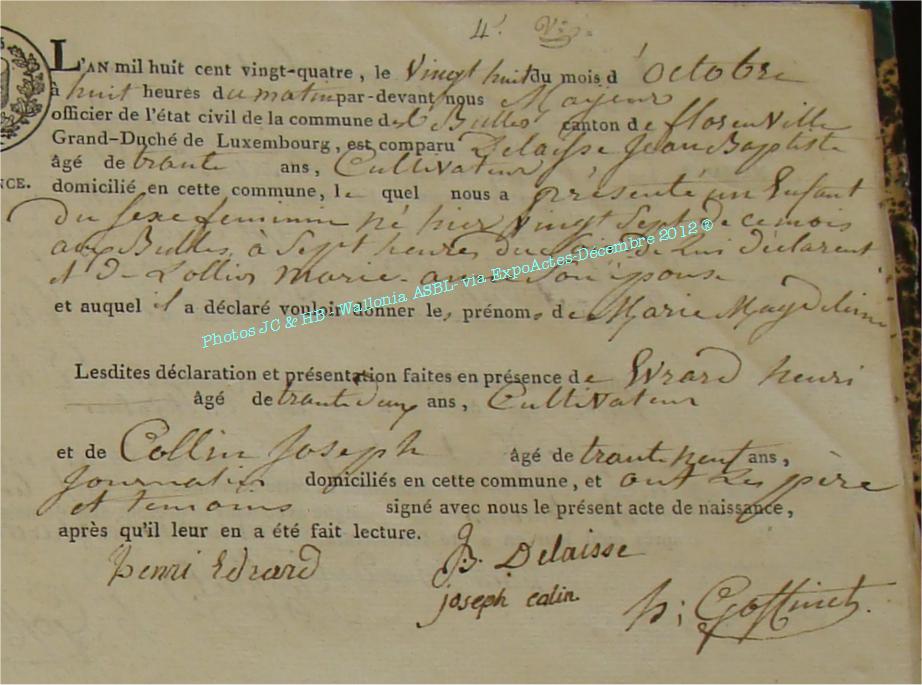 4. V.
L'AN mil huit cent vingt-quatre, le vingt huit du mois d'octobre
à huit heures du matin par-devant nous Mayeur
officier de l'état civil de la commune des Bulles canton de florenville
Grand-Duché de Luxembourg, est comparu Delaisse Jean Baptiste
âgé de trante ans, Cultivateur
NCE. domicilié en cette commune, le quel nous a présenté un Enfant
du sexe feminin né hier vingt sept de ce mois
aux Bulles, à Sept heures du Soir de lui déclarent
et de Lollier marie anne Son épouse
et auquel il a déclaré vouloir donner les prénoms de Marie Magdeleine
Photos JC & HB -Wallonia ASBL- via ExpoActes-Décembre 2012 ®
Lesdites déclaration et présentation faites en présence de Evrard henri
âgé de trante deux ans, Cultivateur
et de Collin Joseph âgé de trante neuf ans,
Journalier domiciliés en cette commune, et ont les père
et temoins signé avec nous le présent acte de naissance,
après qu'il leur en a été fait lecture.
henri Edrard J.B. Delaisse
joseph colin
h; Goffinet.